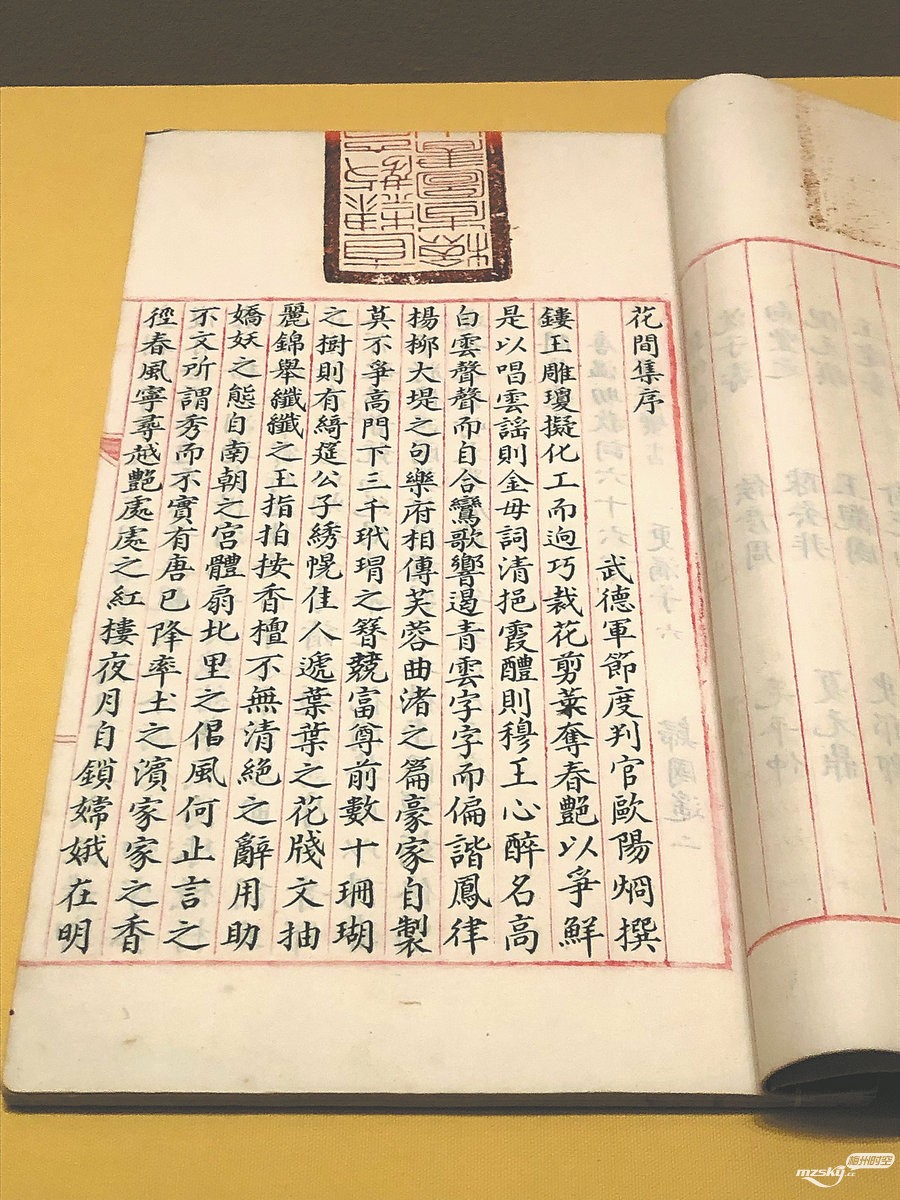 花間集序
武德軍節度判官歐陽烱撰
鏤玉雕瓊擬化工而逈巧裁花剪葉奪春艷以爭鮮
是以唱雲謡則金母詞清挹霞醴則穆王心醉名高
白雲聲聲而自合鸞歌響遏青雲字字而偏諧鳳律
楊柳大堤之句樂府相傳芙蓉曲渚之篇豪家自製
莫不爭高門下三千玳瑁之簪競富尊前數十珊瑚
之樹則有綺筵公子綉幌佳人遞葉葉之花牋文抽
麗錦舉纖纖之玉指拍按香檀不無清絕之辭用助
嬌妖之態自南朝之宮體扇北里之倡風何止言之
不文所謂秀而不實有唐已降率土之濱家家之香
徑春風寧尋越艷處處之紅樓夜月自鎖嫦娥在明
mzsky.cc 梅州时空